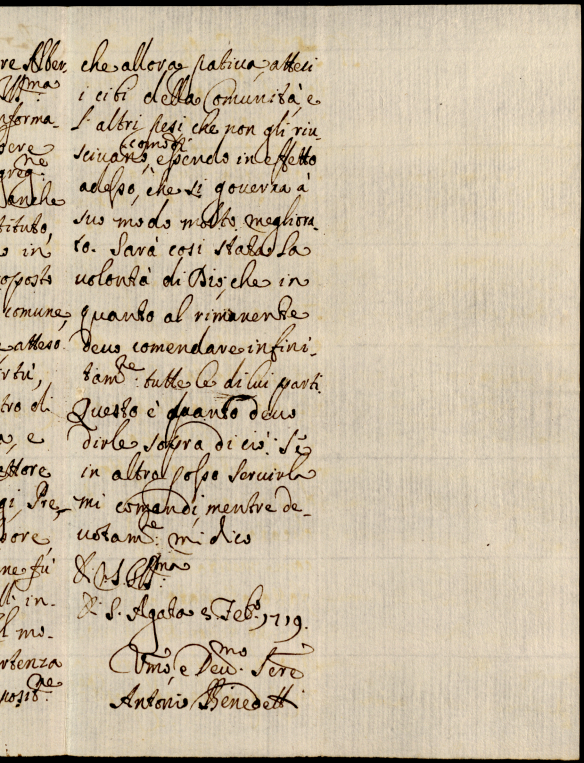 re Alber-
Ill.ma
nforma-
pere
greg.ne
anche
tituto,
o in
opposto
comune,
e atteso
irtù,
tro di
a, e
ettore
gi Pre-
pore
ne fù
lli in-
l mo-
rtenza
posit.ne
che allora pativa, attesi
i cibi della Comunità, e
l'altri pesi che non gli riu-
scivano comodi, essendo in effetto
adesso, che si governa à
suo modo molto megliora-
to. Sarà così stata la
volontà di Dio; che in
quanto al rimanente
devo comendare infini-
tam.te tutte le di lui parti
Questo è quanto devo
dirle sopra di ciò: Se
in altro posso servirla
mi comandi, mentre de-
votam.e mi dico
Di V.S. Ill.ma
S. Agata 3 Feb.o 1719.
Um.o e Dev.mo Ser.e
Antonio Benedetti